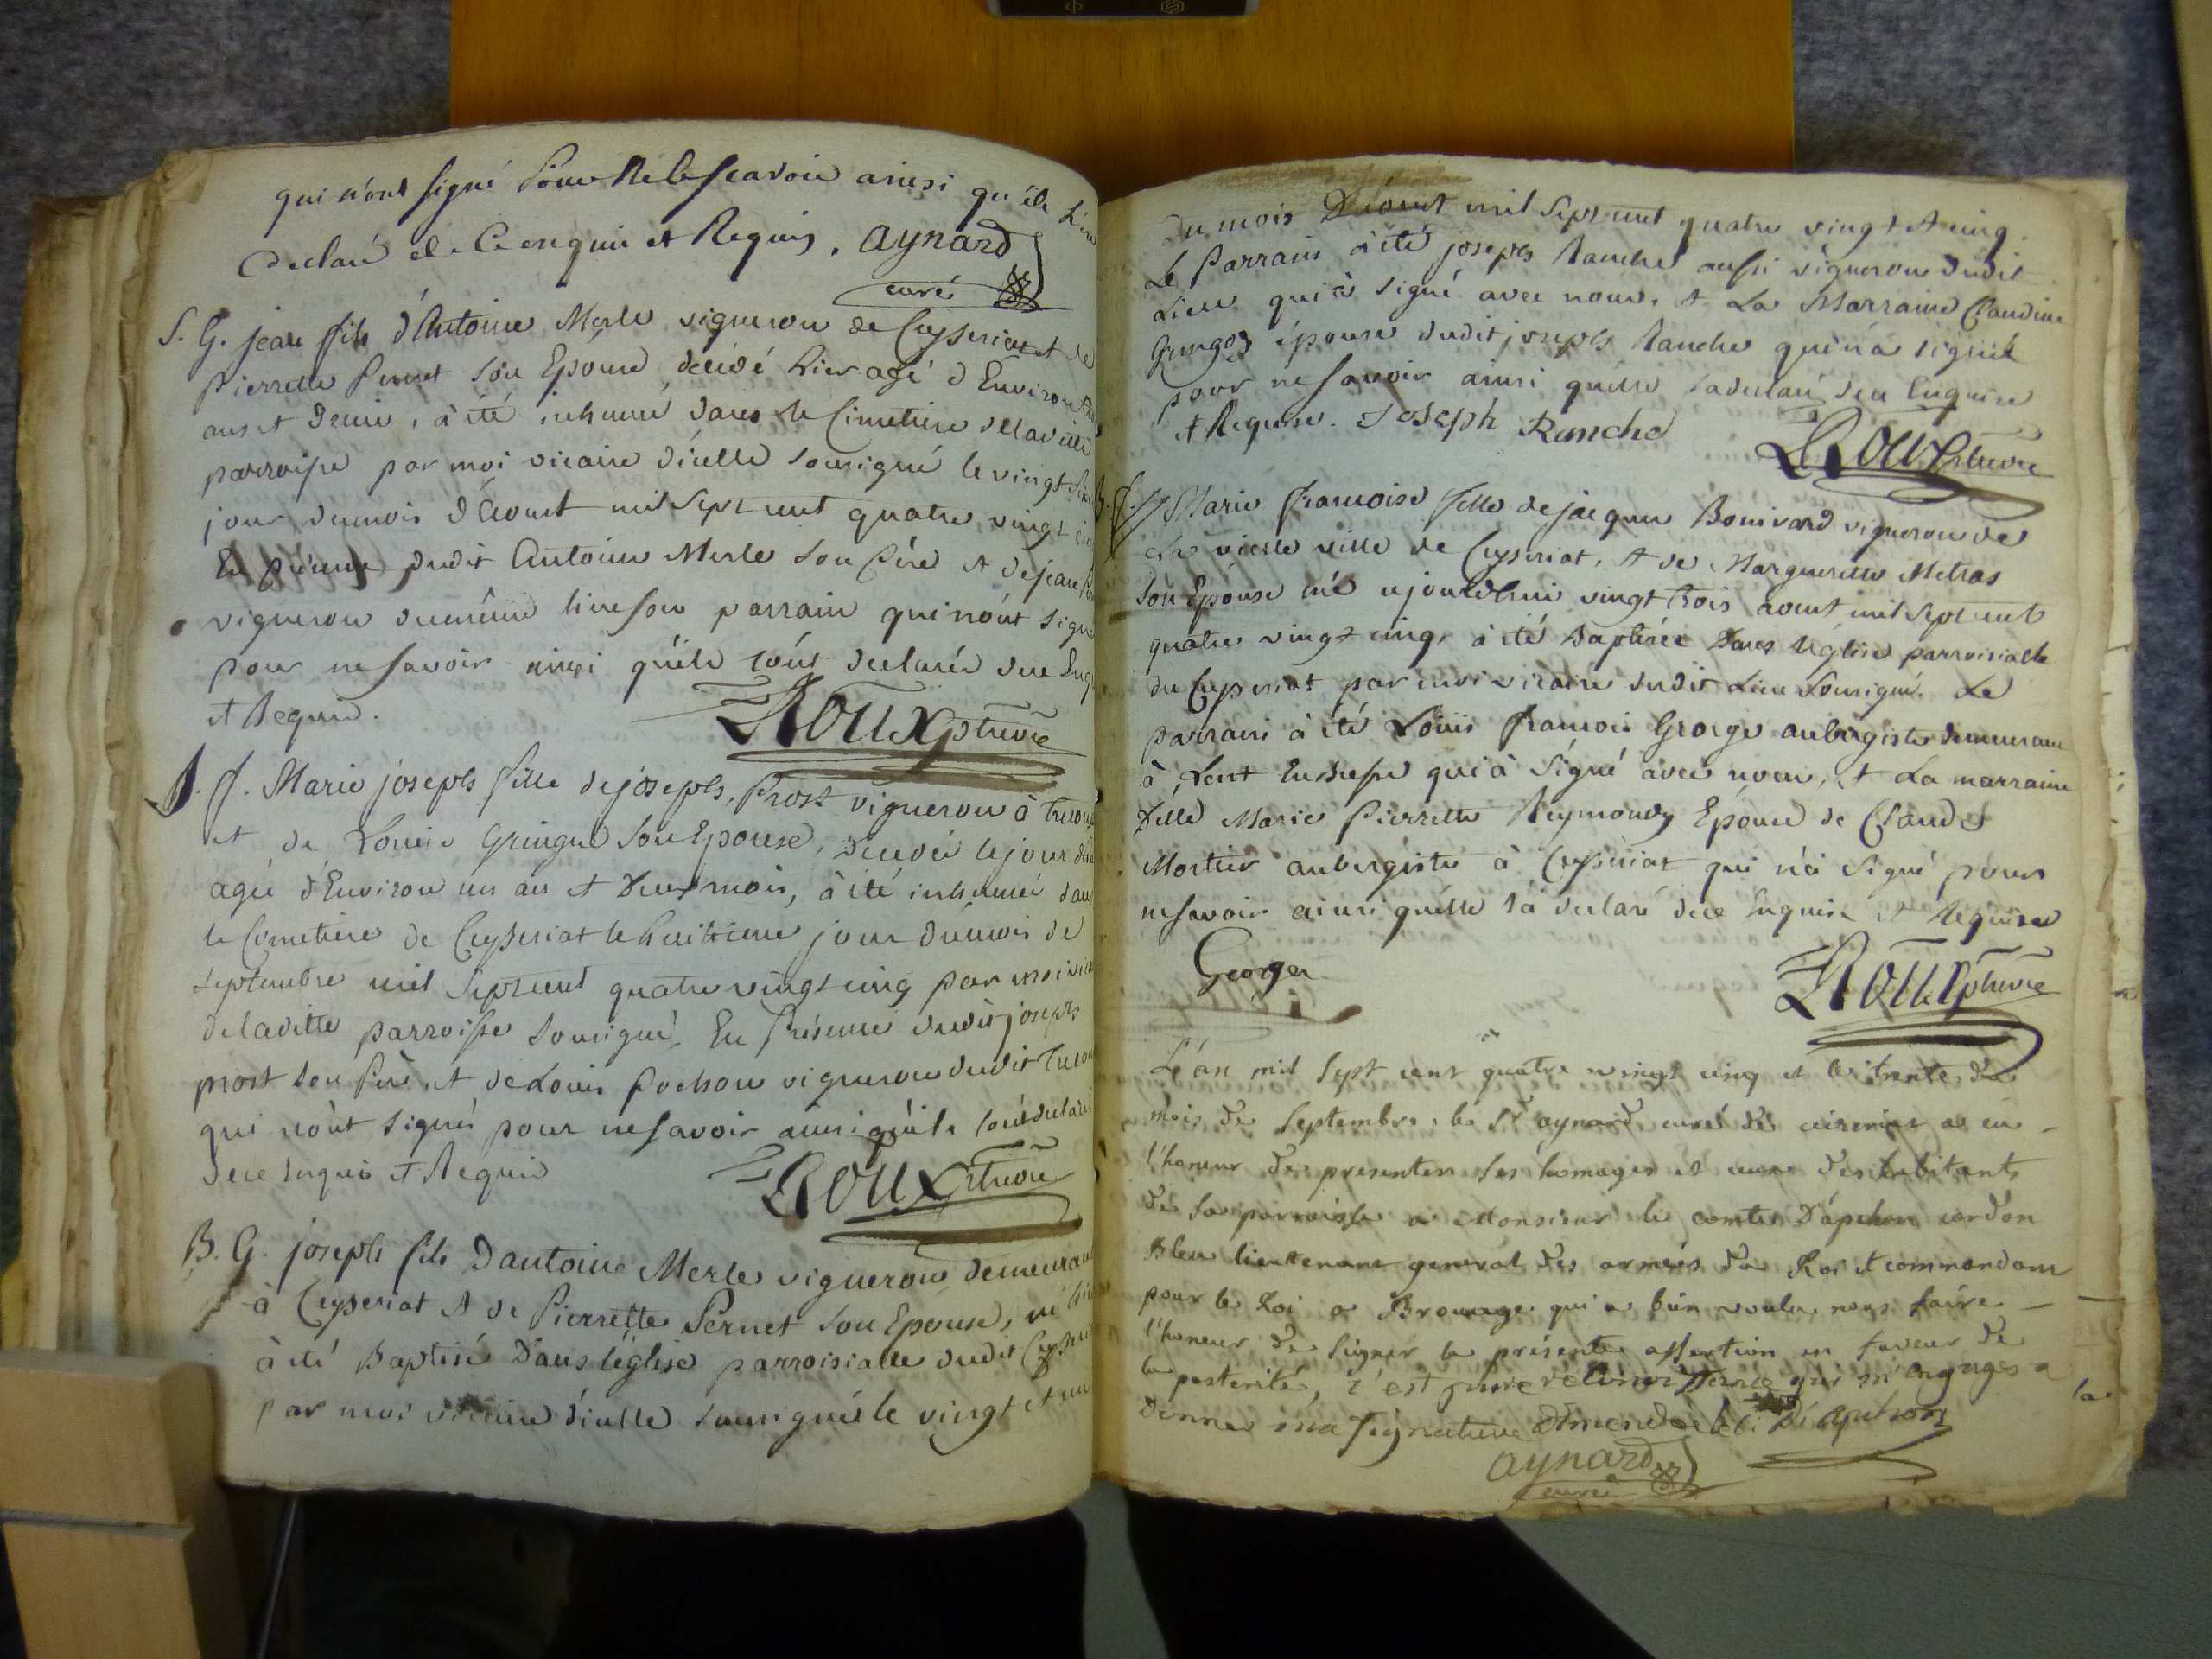 qui n'ont signé pour ne le scavoir ainsi qu'ils l'ont
declaré de ce enquis et Requis. aynard
curé
S. G. jean fils d'Antoine Merle vigneron de Ceyseriat et de
pierrette Pernet son Epouse, décédé hier agé d'Environ
ans et demi, à été inhumé dans le Cimetiere de la ditte
parroisse par moi vicaire d'icelle sousigné le vingt
jour du mois d'Aoust mil sept cent quatre vingt cinq
En présence dudit Antoine Merle son Pére et de jean
vigneron du même lieu son parrain qui n'ont signé
pour ne savoir ainsi qu'ils l'ont declarés de ce Enquis
et Requis.
Roux ptrevre
S. f. Marie joseph fille de joseph Prost vigneron à
et de Louise Gringue son Epouse, decedée le jour
agée d'Environ un an et Deux mois, à été inhumée dans
le Cimetiere de Ceyseriat le huitieme jour du mois de
septembre mil sept cent quatre vingt cinq par moi vicaire
de la ditte parroisse sousigné, En Présence dudit joseph
prost son Pere, et de Louis Pochon vigneron dudit
qui n'ont signés pour ne savoir ainsi qu'ils l'ont declaré
de ce enquis et Requis
Roux ptrevre
B. G. joseph fils D'antoine Merle vigneron demeurant
à Ceyseriat et de Pierrette Pernet son Epouse, né hier
à été Baptisé Dans l'église parroisialle dudit Ceyseriat
par moi vicaire d'icelle sousigné le vingt et un
du mois D'Aoust mil sept cent quatre vingt et cinq.
Le Parrain à été joseph Ranche aussi vigneron dudit
Lieu qui à signé avec nous, et La Marraine Claudine
épouse dudit joseph Ranche qui n'a signé
pour ne savoir ainsi qu'elle l'a declaré de ce Enquise
et Requise. Joseph Ranche
Roux ptrevre
B. f. Marie francoise fille de jacque Bonivard vigneron de
la vielle ville de Ceyseriat, et de Margueritte Metras
son Epouse née ajourdhui vingt trois aout mil sept cent
quatre vingt cinq, à été baptisée Dans L'église parroisialle
du Ceyseriat par moi vicaire dudit Lieu sousigné. Le
parrain à été Louis francois George aubergiste demeurant
à Lent en Bresse qui à signé avec nous, et La marraine
Delle Marie Pierrette Reymondy Epouse de Claude
Mortier aubergiste à Ceyseriat qui n'à signé pour
ne savoir ainsi qu'elle l'à declaré de ce Enquise et Requise
George
Roux ptrevre
L'an mil sept cent quatre vingt cinq et le trente du
mois de septembre, le Sr aynard curé de ceiseriat a eu
l'honeur de presenter ses homages et ceux des habitants
de sa parroisse a Monsieur le comte D'apchon cordon
Bleu lieutenant general des armées du Roi et commandant
pour le Roi a Brouage qui a bien voulu nous faire
l'honeur de signer la présente assertion en faveur de
la posterité, c'est qui m'engage a
donner ma signature D'Apchon
aynard
curé
la